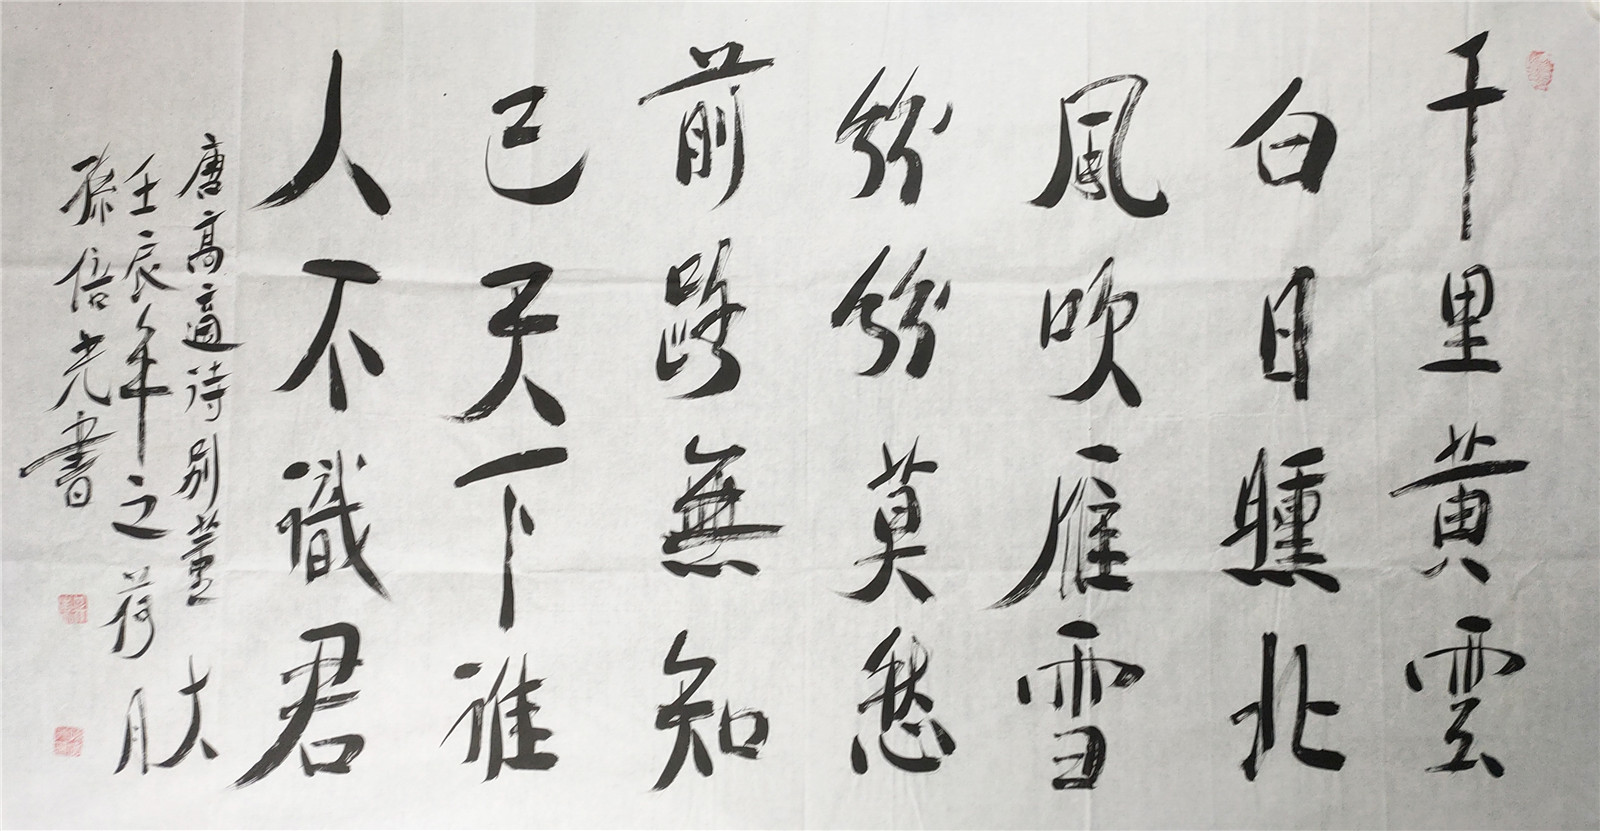 千里黄雲
白日曛北
風吹雁雪
紛紛莫愁
前路無知
己天下誰
人不識君
唐高適詩別董大
壬辰年之荷月
孫倍光書